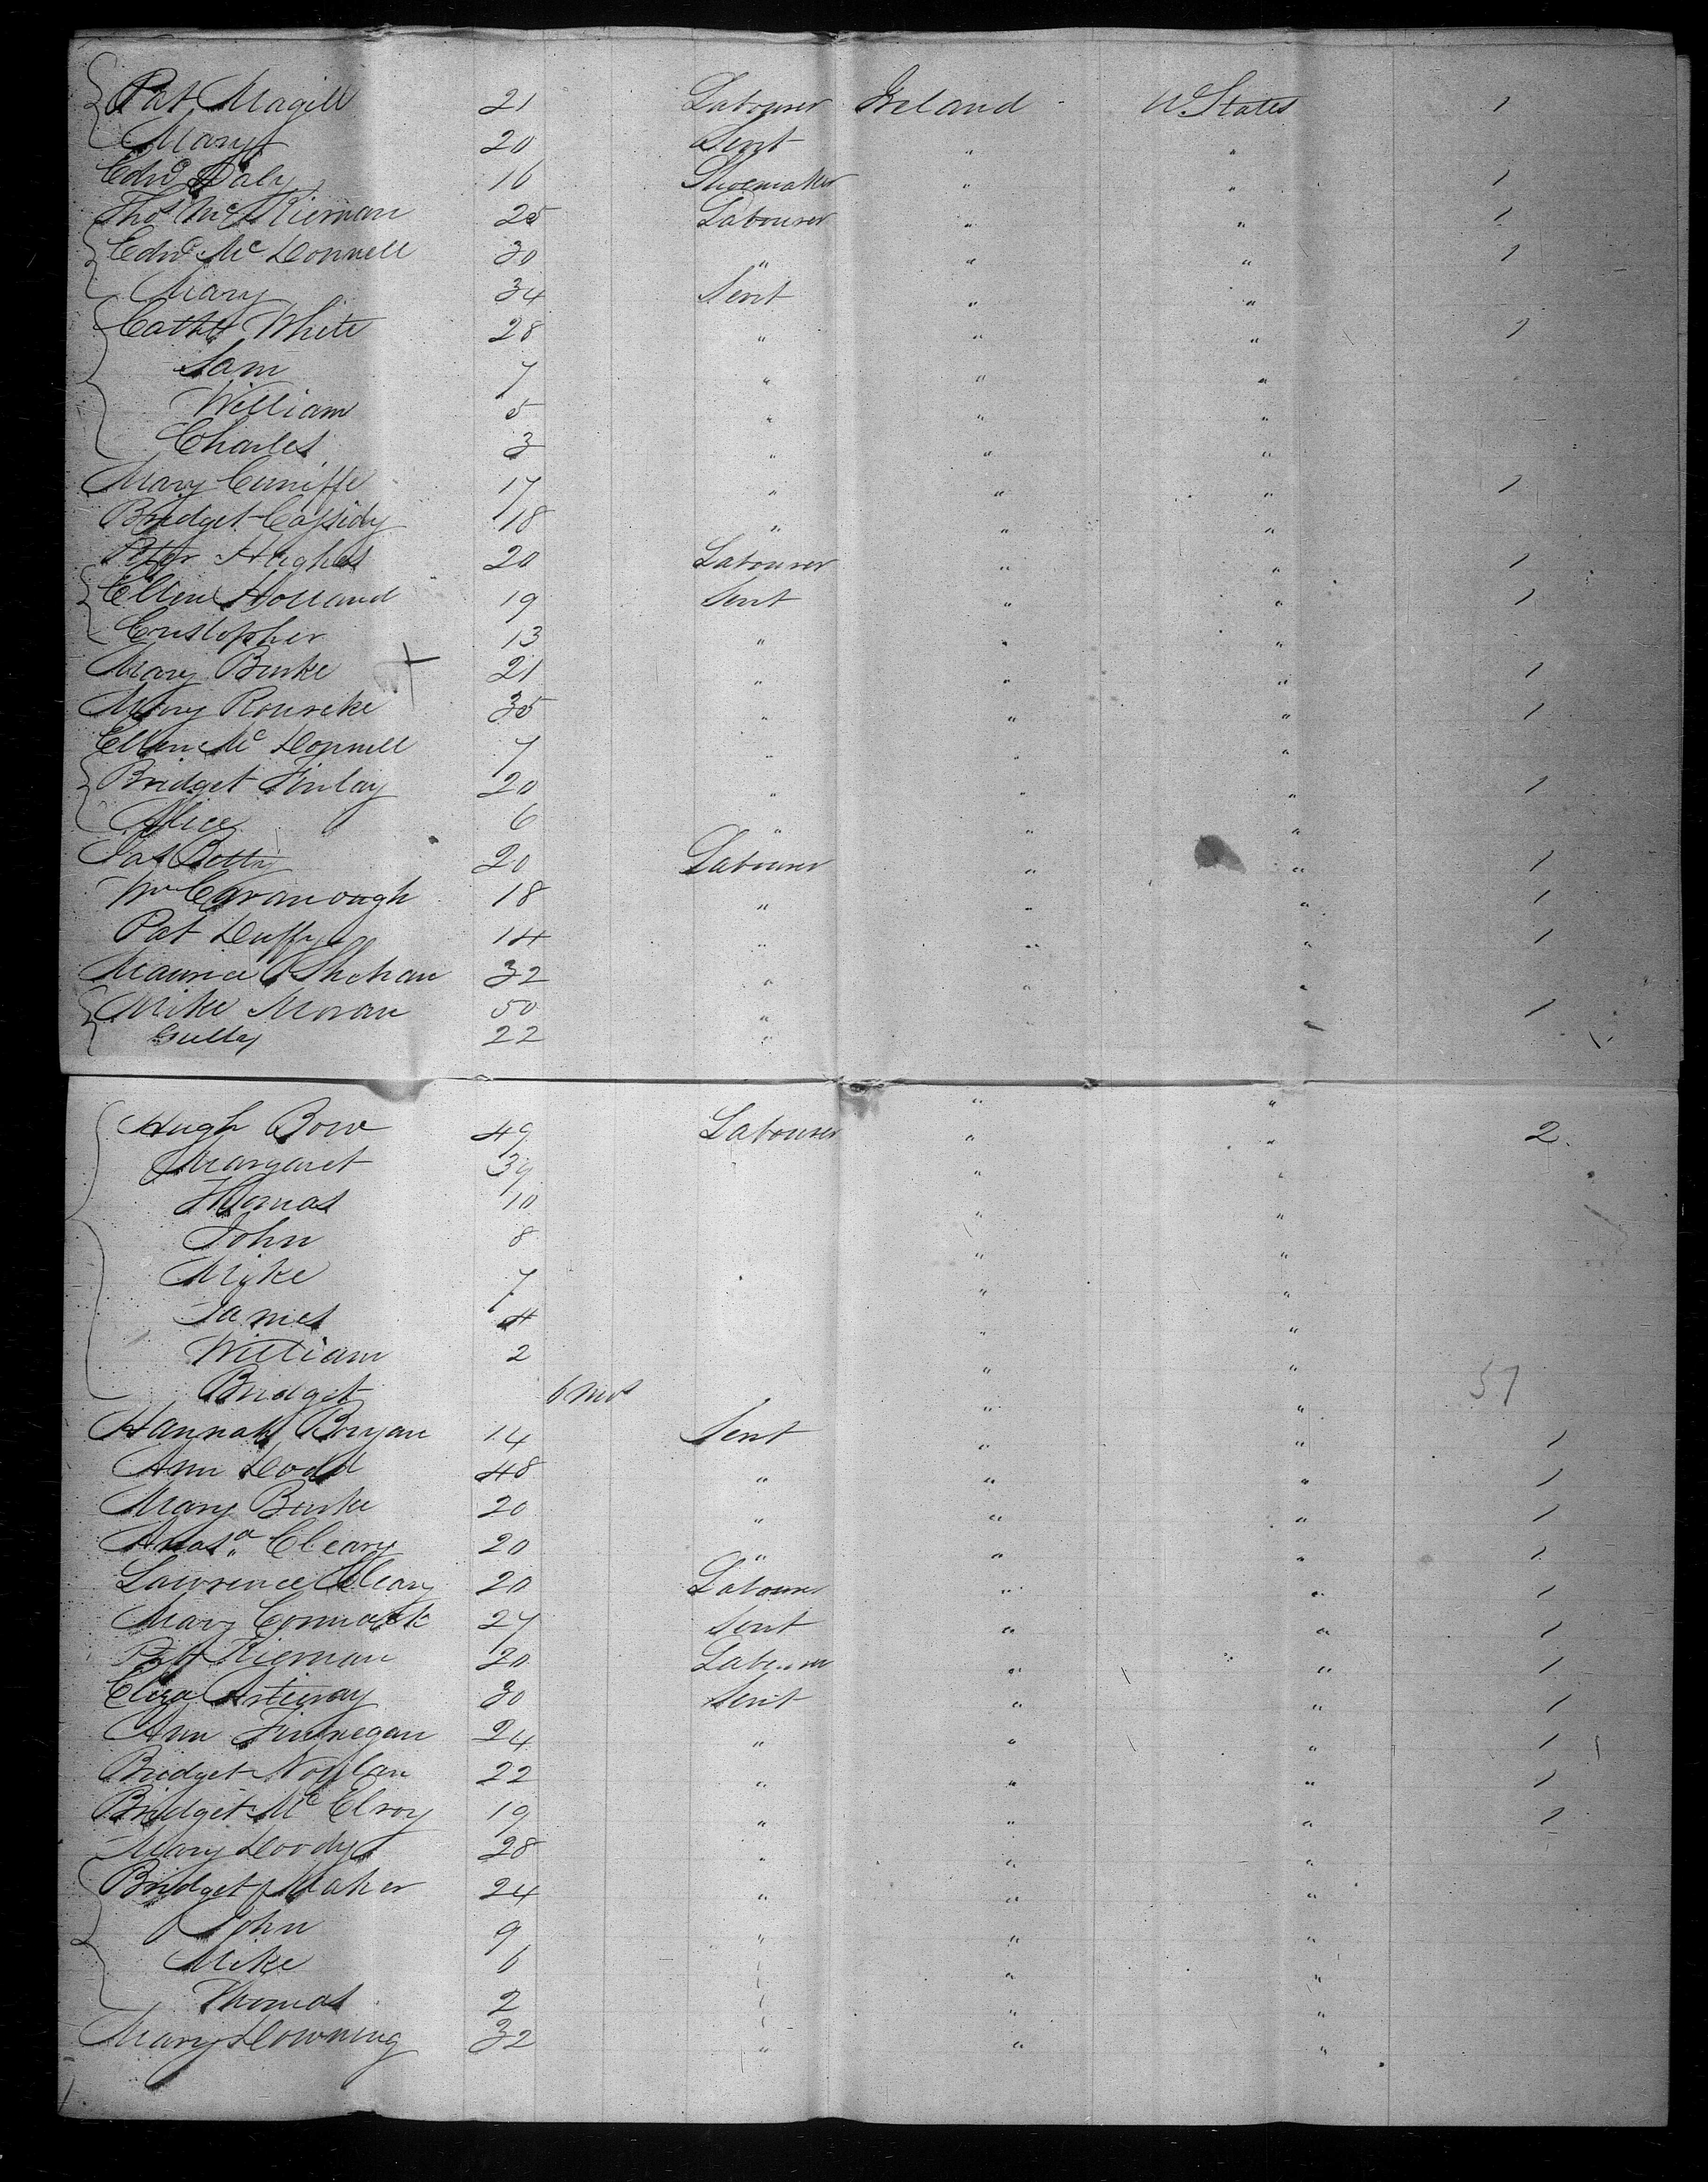 Pat Magill 21 Labourer Ireland U. States 1
Mary 20 Sert " "
Edwd Daly 16 Shoemaker " " 1
Thos McKiernan 25 Labourer " " 1
Edwd McDonnell 30 " " " 1
Mary 34 Sert " "
Cathe White 28 " " " 1
Sam 7 " " "
William 5 " " "
Charles 3 " " "
Mary Cuniffe 17 " " " 1
Bridget Cassidy 18 " " "
Peter Hughes 20 Labourer " " 1
Ellen Holland 19 Sert " " 1
Cristopher 13 " " "
Mary Burke 21 " " " 1
Mary Rourcke 35 " " " 1
Ellen McDonnell 7 " " "
Bridget Finlay 20 " " " 1
Alice 6 " " "
20 Labourer " " 1
Wm Cavanough 18 " " " 1
Pat Duffy 14 " " " 1
Maurice Shehan 32 " " "
Mike Moran 50 " " 1
22 "
" "
Hugh Bow 49 Labourer " " 2
Margaret 39 " "
Thomas 10 " "
John 8 " "
Mike 7 " "
James 4 " "
William 2 " "
Bridget 6 mos " " 51
Hannah Bonyan 14 Sert " " 1
Ann Dodd 48 " " " 1
Mary Burke 20 " " " 1
Anasa Cleary 20 " " " 1
Lawrence Cleary 20 Labourer " " 1
Mary Cormack 27 Sert " " 1
Pat Kiernan 20 Labourer " " 1
Eliza 30 Sert " " 1
Ann Finnegan 24 " " " 1
Bridget Nowlan 22 " " " 1
Bridget McElroy 19 " " " 1
Mary Doody 28 " " "
Bridget Maher 24 " " "
John 9 " " "
Mike 6 " "
Thomas 2 " "
Mary Downing 32 " " "